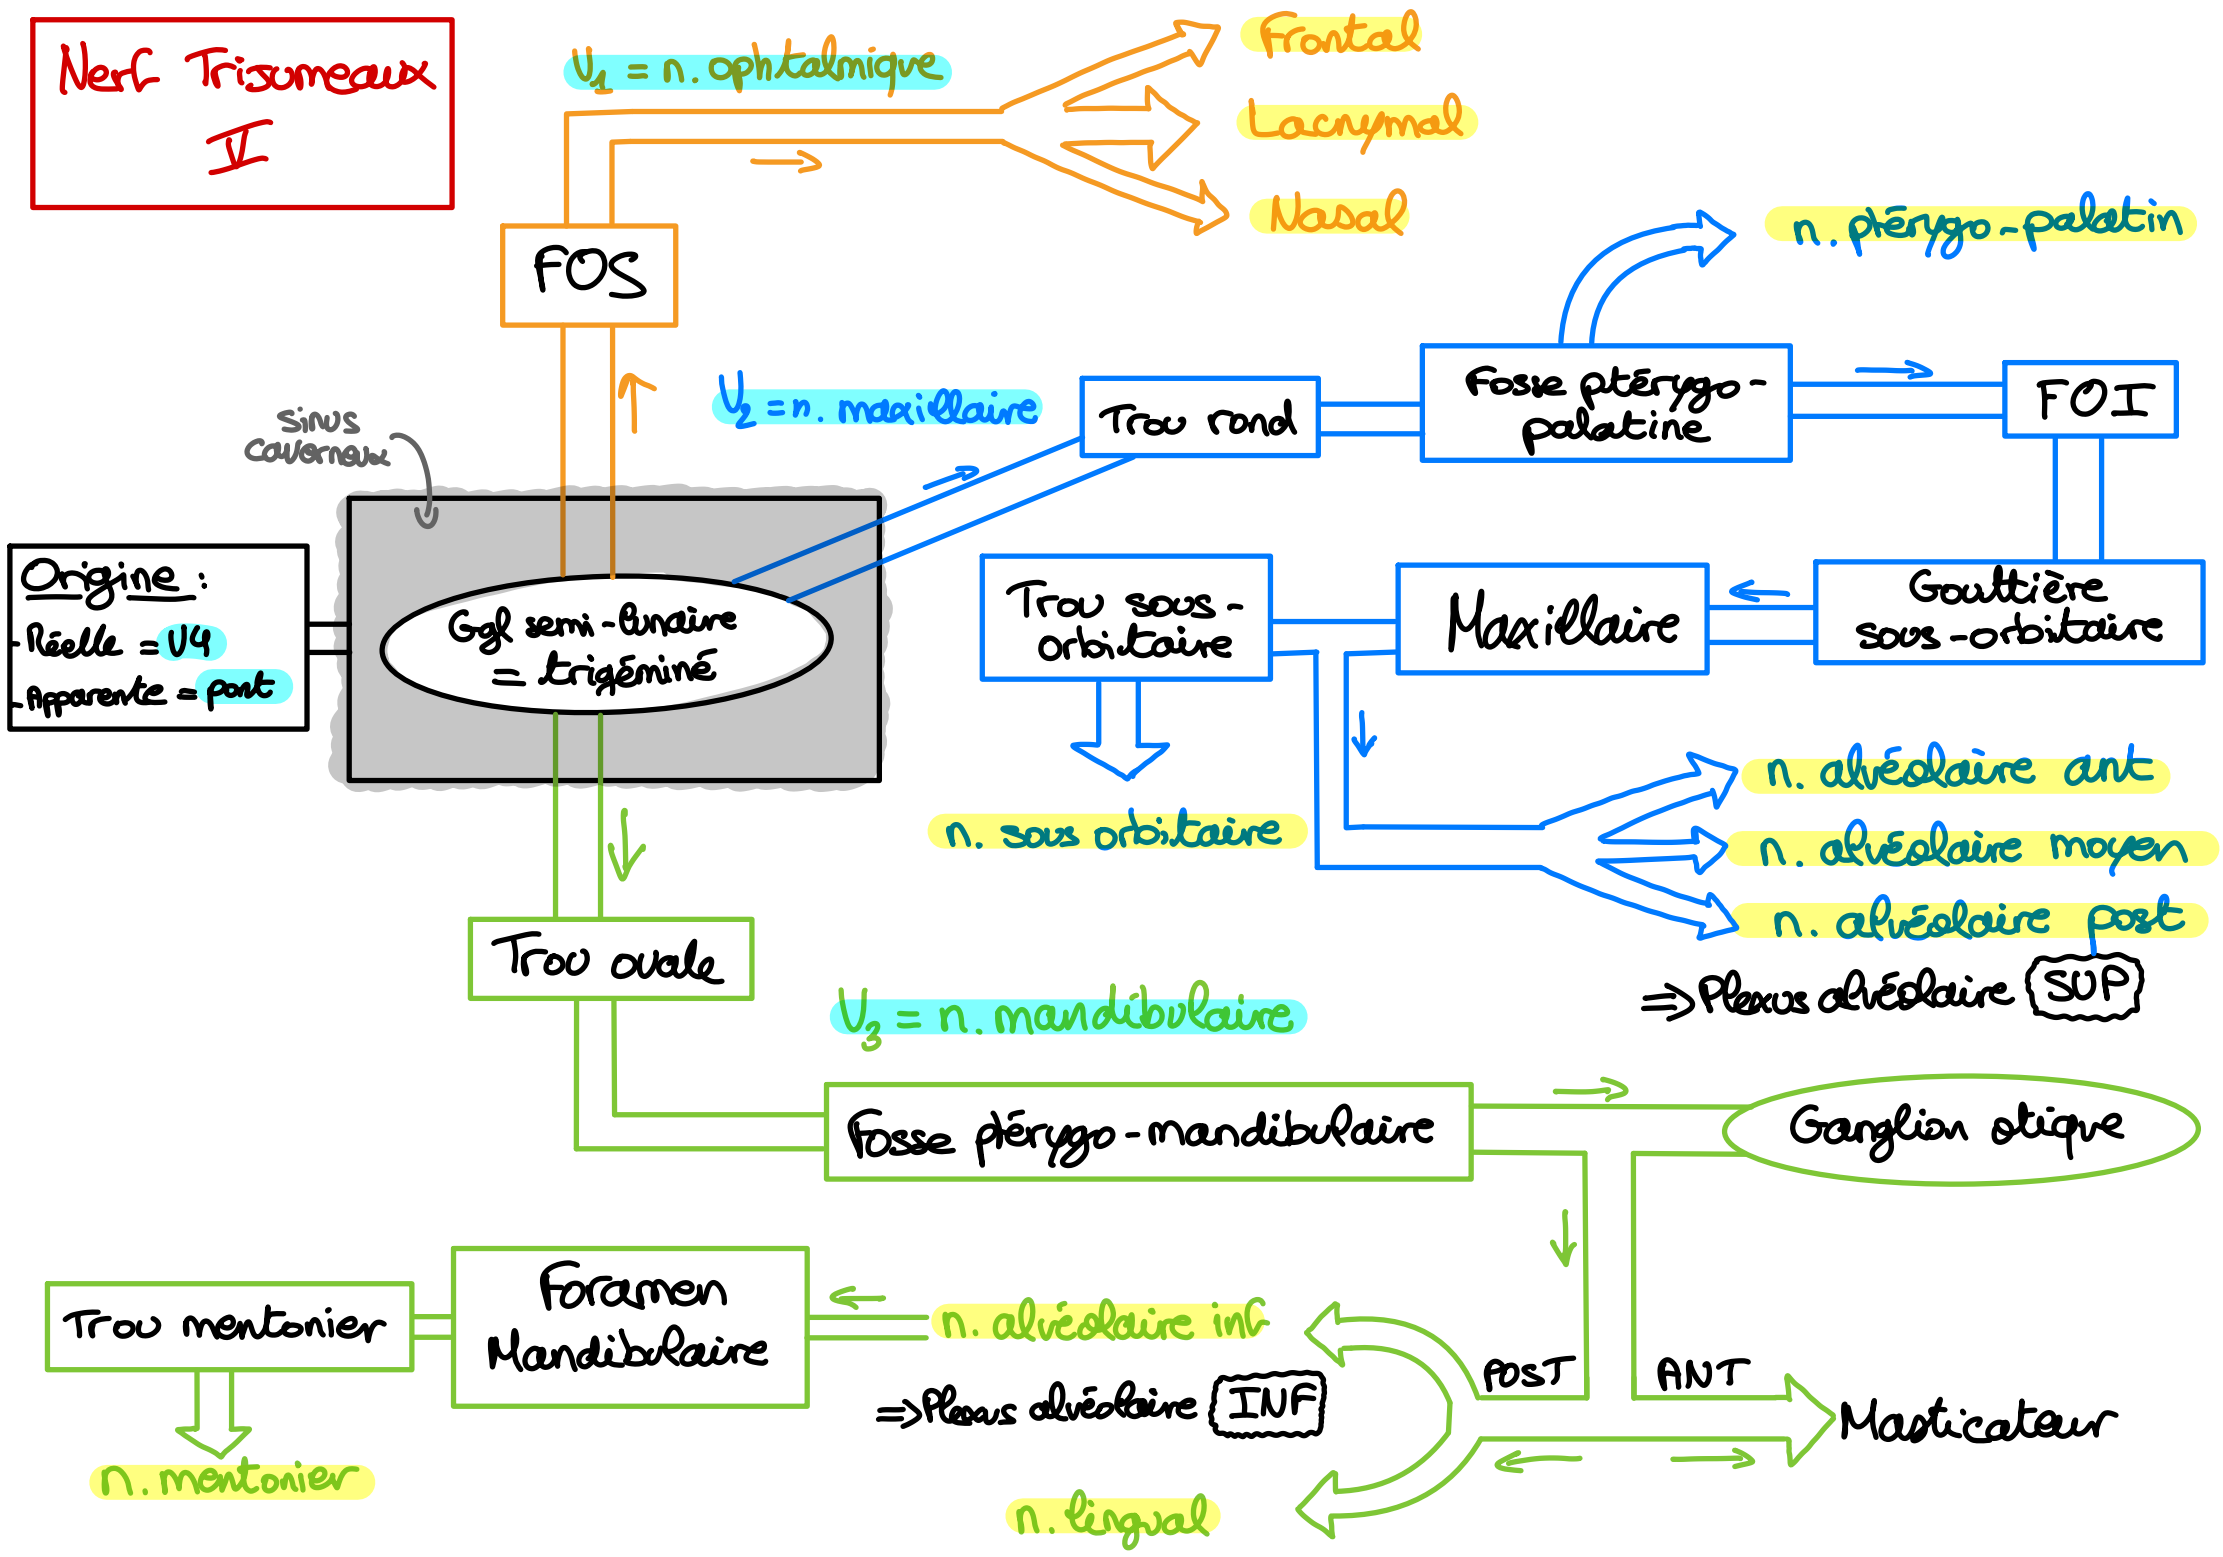 Nerf Trijumeaux
V
V1 = n. ophtalmique
Frontal
Lacrymal
Nasal
FOS
n. ptérygo-palatin
V2 = n. maxillaire
Trou rond
Fosse ptérygo-
palatine
FOI
sinus
caverneux
Origine :
- Réelle = V4
- Apparente = pont
Ggl semi-lunaire
= trigéminé
Trou sous-
orbitaire
Maxillaire
Gouttière
sous-orbitaire
n. sous orbitaire
n. alvéolaire ant
n. alvéolaire moyen
n. alvéolaire post
⇒ Plexus alvéolaire SUP
Trou ovale
V3 = n. mandibulaire
Fosse ptérygo-mandibulaire
Ganglion otique
Trou mentonier
Foramen
Mandibulaire
n. alvéolaire inf
⇒ Plexus alvéolaire INF
POST
ANT
Masticateur
n. mentonier
n. lingual